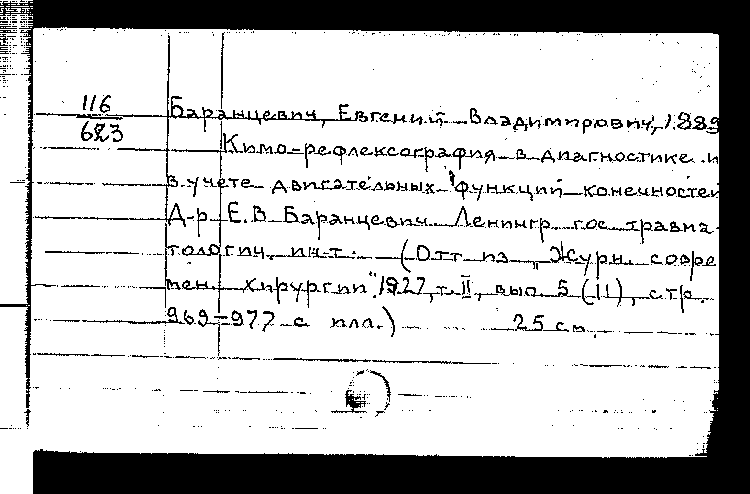 116
623
Баранцевич, Евгений Владимирович, 1889
Кимо-рефлексография в диагностике и
в учете двигательных функций конечностей
Д-р Е.В. Баранцевич. Ленингр. гос. травма-
тологич. ин-т. (Отт. из „Журн. совре
мен. хирургии". 1927, т. II, вып. 5 (11), стр.
969-977 с илл.) 25 см.